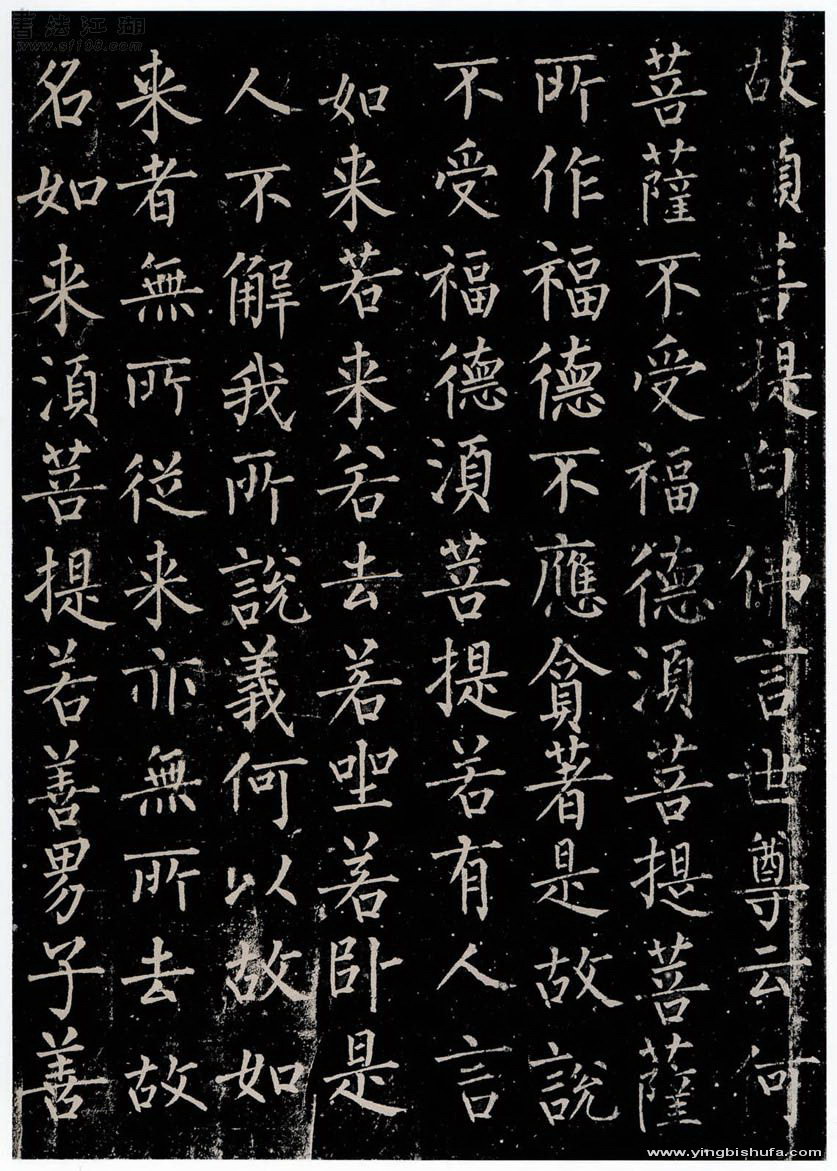 故須菩提白佛言世尊云何
菩薩不受福德須菩提菩薩
所作福德不應貪著是故說
不受福德須菩提若有人言
如来若来若去若坐若卧是
人不解我所說義何以故如
来者無所從来亦無所去故
名如来須菩提若善男子善
書法江湖
www.yingbishufa.com